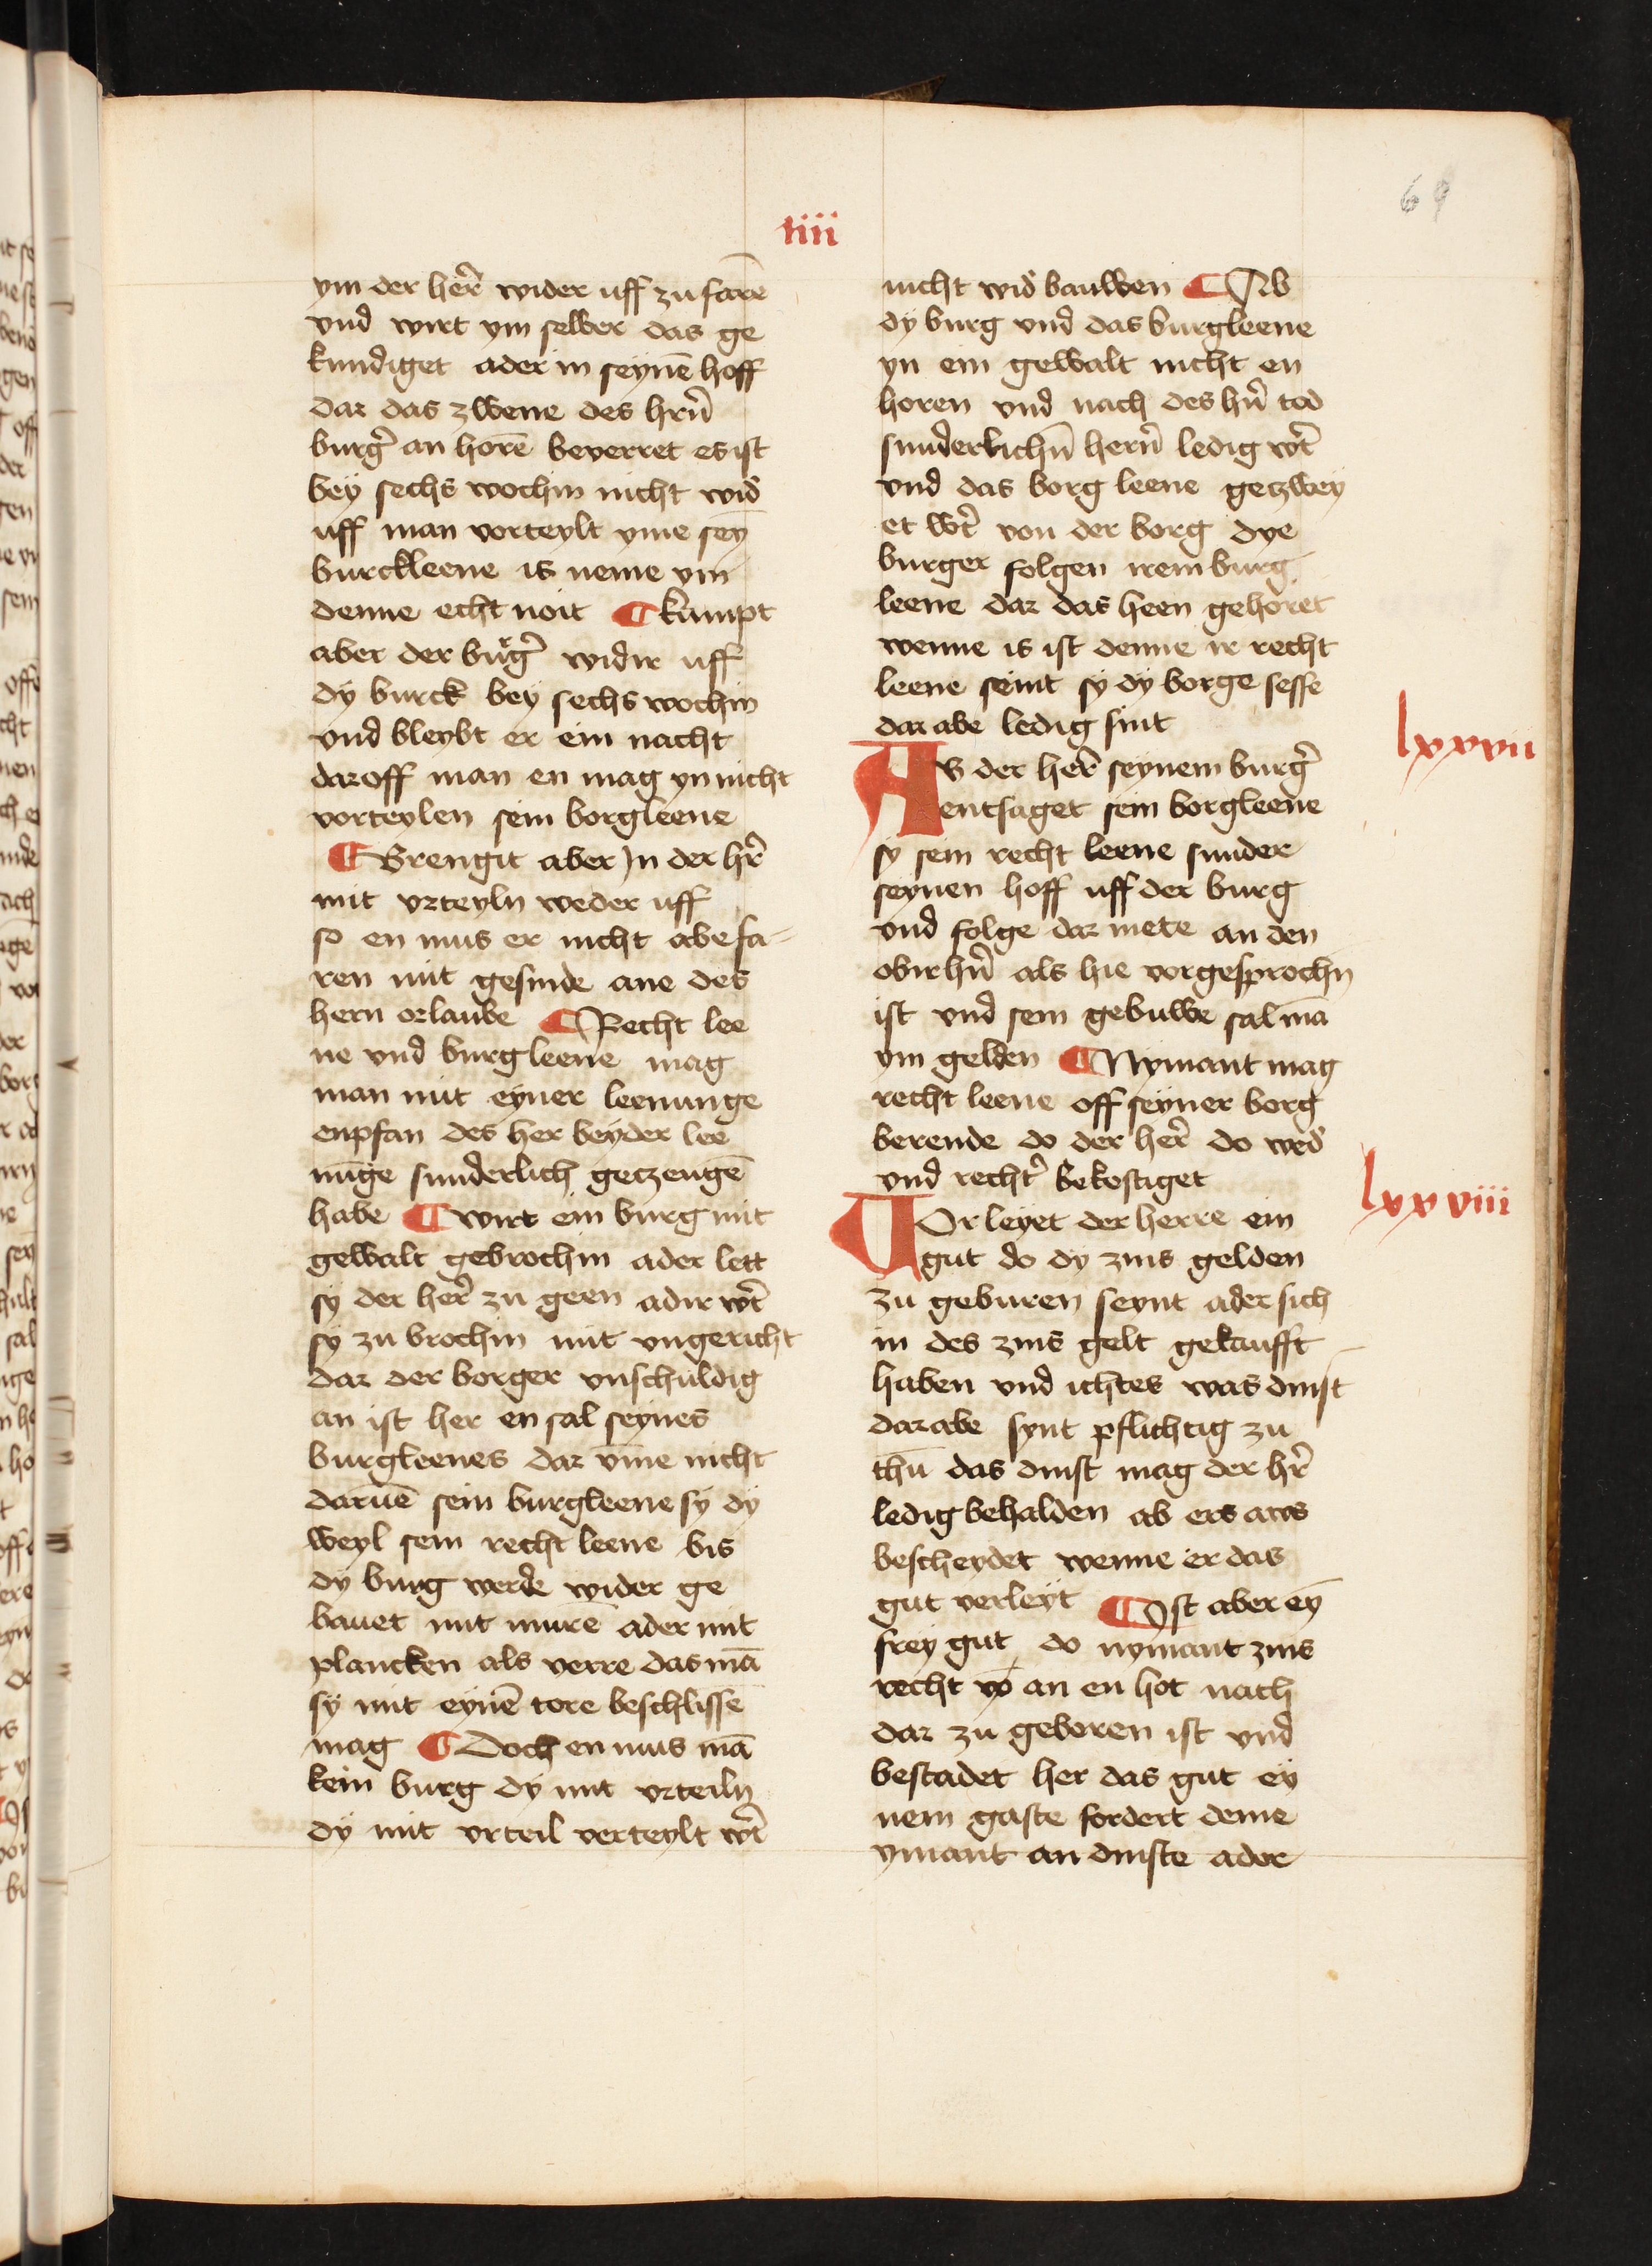 69
iiii
ym der her̄ wider uff zu farē
vnd wirt ym selber das ge
kundiget ader in seynē hoff
dar das zwene des hrn̄
burg̉ an horē beverret es ist
bey sechs wochin nicht wid̉
uff man vorteylt yme seȳ
burckleene is neme ym
denne echt noit ¶ kumpt
aber der burg̉ widir uff
dy burck bey sechs wochin
vnd bleybt er ein nacht
daroff man en mag yn nicht
vorteylen sein borgleene
¶ Brengit aber in der hr̄
mit vrteyln weder uff
so en mus er nicht abe fa-
ren mit gesinde ane des
hern orlaube ¶ Recht lee
ne vnd burgleene mag
man mit eyner leenunge
enpfan des her beyder lee
nūge sunderlich getzeugē
habe ¶ wirt ein burg mit
gewalt gebrochin ader lett
sy der her̄ zu geen adir wt̉
sy zu brochin mit vngericht
dar der borger vnschuldig
an ist her en sal seynes
burgleenes dar vm̄e nicht
daruē sein burgleene sy dy
weyl sein recht leene bis
dy burg werde wider ge
bauet mit murē ader mit
plancken als verre das mā
sy mit eynē tore beschlissē
mag ¶ Doch en mus mā
kein burg dy mit vrteiln
dy mit vrteil verteylt wt̉
nicht wid̉ bauwen ¶ Ab
dy burg vnd das burgleene
yn ein gewalt nicht en
horen vnd nach des hn̉ tod
sunderlichn̄ hern̄ ledig wt̉
vnd das borg leene getzwey
et wt̉ von der borg dye
burger folgen irem burg
leene dar das heen gehoret
wenne is ist denne ir recht
leene seint sy dy borge sesse
dar abe ledig sint
lxxvii
AB der her̄ seynem burg̉
entsaget sein borgleene
sy sein recht leene sunder
seynen hoff uff der burg
vnd folge dar mete an den
obirhn̉ als hie vorgesprochn
ist vnd sein gebuwe sal mā
ym gelden ¶ Nymant mag
recht leene off seyner borg
berende do der her̄ do wed̉
vnd recht̉ bekostiget
lxxviii
VOrleyet der herre ein
gut do dy zins gelden
zu geburen seynt ader sich
in des zins gelt gekaufft
haben vnd ichtes was dinst
dar abe synt pflichtig zu
thū das dinst mag der hr̄
ledig behalden ab ers aws
bescheydet wenne er das
gut verleyt ¶ Ist aber eȳ
frey gut do nymant zins
recht vō an en hot nach
dar zu geboren ist vnd
bestadet her das gut ey
nem gaste fordert deme
ymant an dinste ader